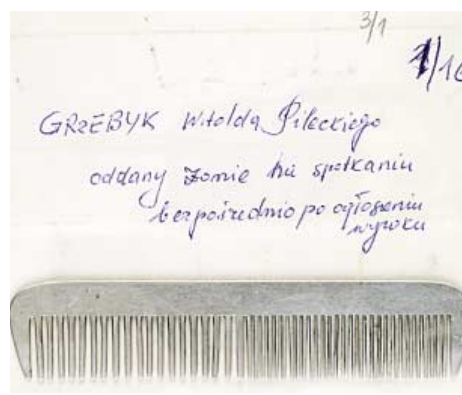 3/1
1/16
GRZEBYK Witolda Pileckiego
oddany żonie na spotkaniu
bezpośrednio po ogłoszeniu
wyroku